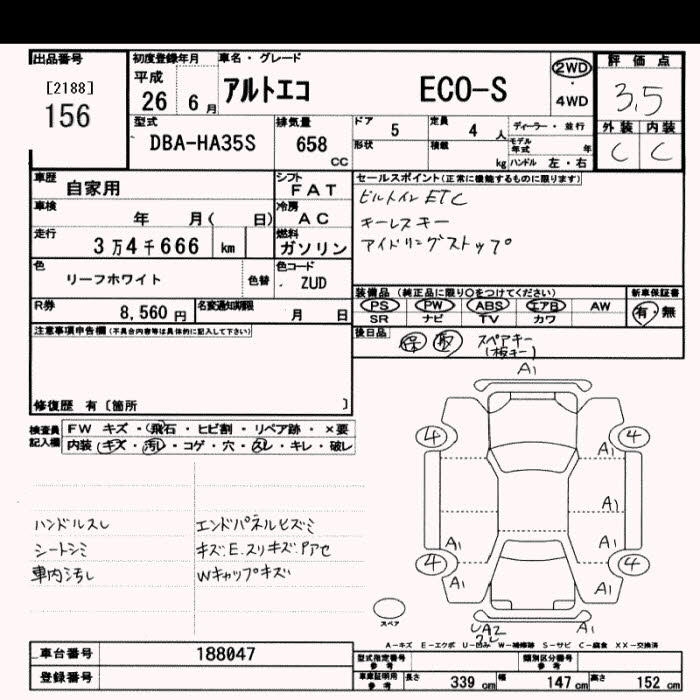 出品番号
[2188]
156
初度登録年月
平成
26 6月
車名・グレード
アルトエコ ECO-S
2WD
・
4WD
評価点
3.5
外装 内装
C C
型式
DBA-HA35S
排気量
658
CC
ドア
5
定員
4 人
形状
積載
kg
ディーラー・並行
モデル年式 年
ハンドル 左・右
車歴
自家用
シフト
FAT
車検
年 月( 日)
冷房
AC
走行
3万4千666 km
燃料
ガソリン
色
リーフホワイト
色替
色コード
ZUD
R券
8,560 円
名変通知期限
月 日
セールスポイント(正常に機能するものに限ります)
ビルトインETC
キーレスキー
アイドリングストップ
装備品(純正品に限り〇をつけてください)
PS PW ABS エアB AW
SR ナビ TV カワ
新車保証書
有・無
後日品
保 取 スペアキー
(板キー)
注意事項申告欄(不具合内容等は具体的に記入して下さい)
修復歴 有〔箇所 〕
検査員
記入欄
FW キズ・飛石・ヒビ割・リペア跡・×要
内装・キズ・汚れ・コゲ・穴・スレ・キレ・破レ
ハンドルスレ
シートシミ
車内汚れ
エンドパネルヒズミ
キズ.E.スリキズ.Pアセ
Wキャップキズ
A1
4 4
A1
A1
A1 A1
4 4
A1 A1
UA2 A1
スペア
A-キズ E-エクボ U-凹み W-補修跡 S-サビ C-腐食 XX-交換済
車台番号
188047
登録番号
型式指定番号
参考
類別区分番号
参考
車庫証明用
参考
長さ 339 cm 幅 147 cm 高さ 152 cm